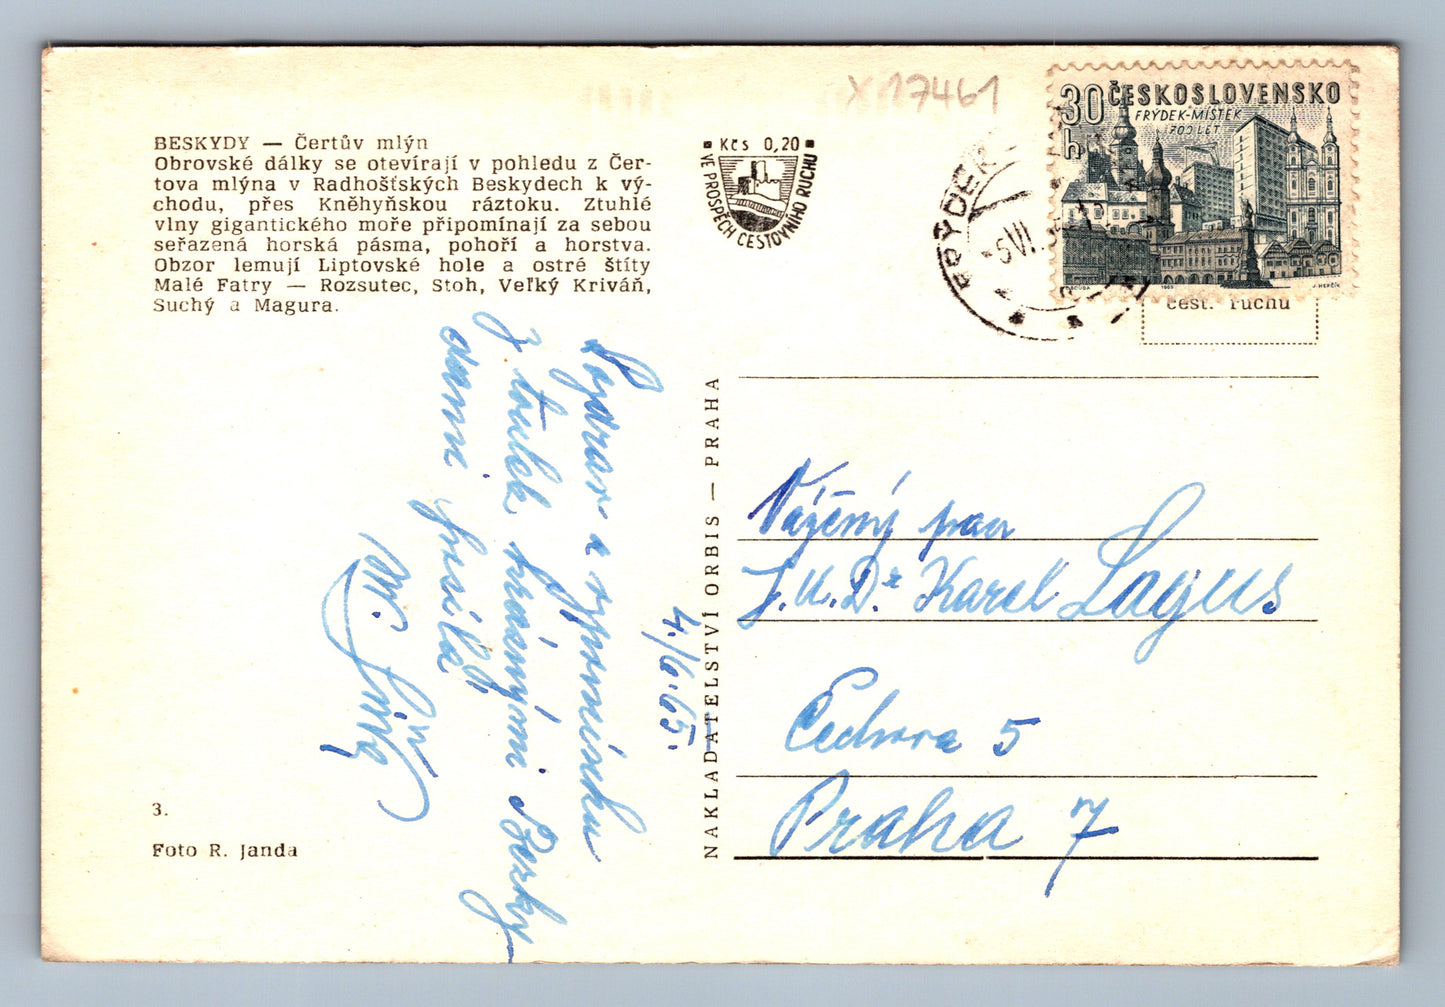 X 17461
BESKYDY — Čertův mlýn
Obrovské dálky se otevírají v pohledu z Čer-
tova mlýna v Radhošťských Beskydech k vý-
chodu, přes Kněhyňskou ráztoku. Ztuhlé
vlny gigantického moře připomínají za sebou
seřazená horská pásma, pohoří a horstva.
Obzor lemují Liptovské hole a ostré štíty
Malé Fatry — Rozsutec, Stoh, Veľký Kriváň,
Suchý a Magura.
Kčs 0,20
VE PROSPĚCH CESTOVNÍHO RUCHU
30 h
ČESKOSLOVENSKO
FRÝDEK-MÍSTEK
700 LET
1965
J. HERČÍK
FRÝDEK
VI
cest. ruchu
4./6.65.
Pozdrav a vzpomínku
z toulek krásnými Bezky
dami posílá
NAKLADATELSTVÍ ORBIS — PRAHA
Vážený pan
J.U.Dr Karel Lagus
Čechova 5
Praha 7
3.
Foto R. Janda